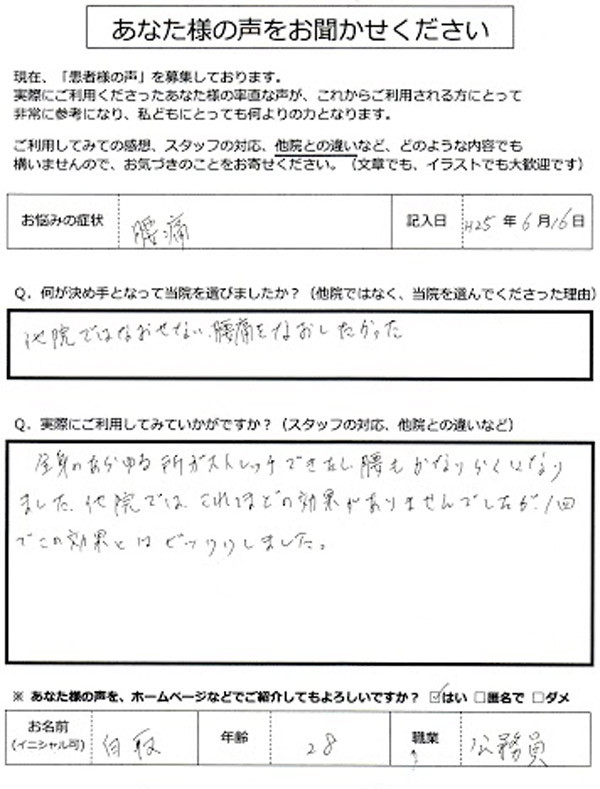 あなた様の声をお聞かせください
現在、「患者様の声」を募集しております。
実際にご利用くださったあなた様の率直な声が、これからご利用される方にとって
非常に参考になり、私どもにとっても何よりの力となります。
ご利用してみての感想、スタッフの対応、他院との違いなど、どのような内容でも
構いませんので、お気づきのことをお寄せください。（文章でも、イラストでも大歓迎です）
お悩みの症状 腰痛 記入日 H25年6月16日
Q．何が決め手となって当院を選びましたか？（他院ではなく、当院を選んでくださった理由）
他院ではなおせない、腰痛をなおしたかった
Q．実際にご利用してみていかがですか？（スタッフの対応、他院との違いなど）
全身のあらゆる所がストレッチできたし腰もかなりらくになり
ました。他院では、これほどの効果がありませんでしたが、1回
でこの効果とはビックリしました。
※ あなた様の声を、ホームページなどでご紹介してもよろしいですか？ ☑はい □匿名で □ダメ
お名前 年齢 28 職業 公務員
(イニシャル可)